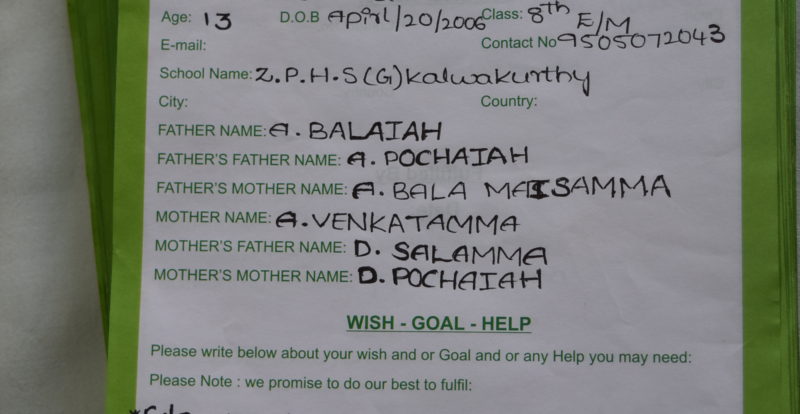 Age: 13 D.O.B April/20/2006 Class: 8th E/M
E-mail: Contact No 9505072043
School Name: Z.P.H.S(G) Kalwakurthy
City: Country:
FATHER NAME: A. BALAIAH
FATHER'S FATHER NAME: A. POCHAIAH
FATHER'S MOTHER NAME: A. BALA MAISAMMA
MOTHER NAME: A. VENKATAMMA
MOTHER'S FATHER NAME: D. SALAMMA
MOTHER'S MOTHER NAME: D. POCHAIAH
WISH - GOAL - HELP
Please write below about your wish and or Goal and or any Help you may need:
Please Note : we promise to do our best to fulfil: